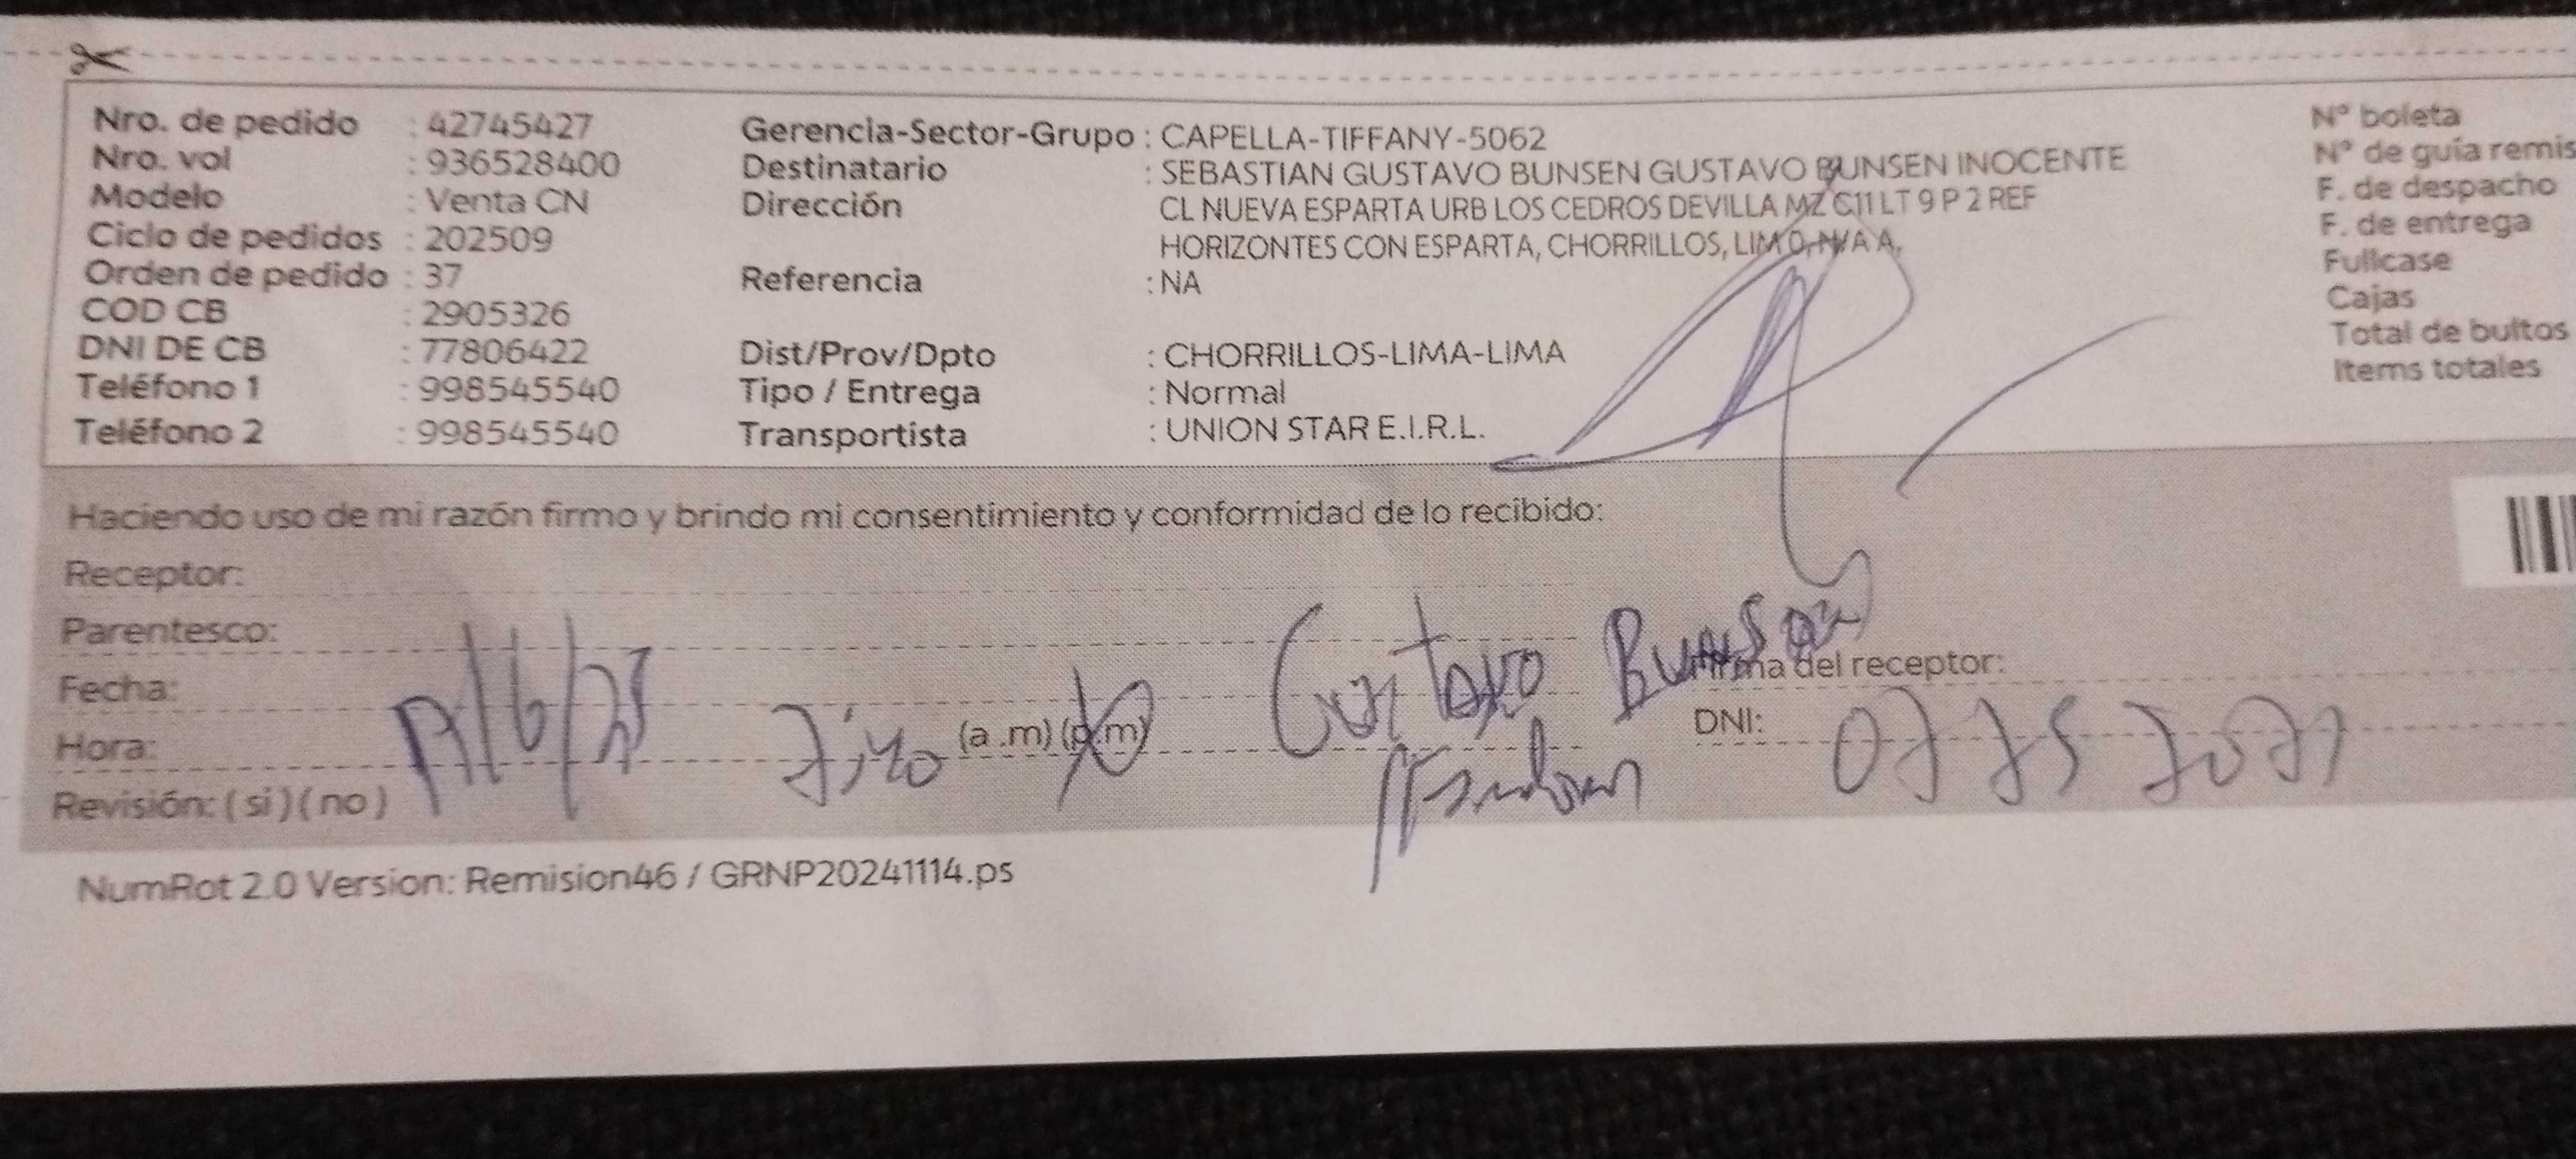 Nro. de pedido : 42745427
Nro. vol : 936528400
Modelo : Venta CN
Ciclo de pedidos : 202509
Orden de pedido : 37
COD CB : 2905326
DNI DE CB : 77806422
Teléfono 1 : 998545540
Teléfono 2 : 998545540
Gerencia-Sector-Grupo : CAPELLA-TIFFANY-5062
Destinatario : SEBASTIAN GUSTAVO BUNSEN GUSTAVO BUNSEN INOCENTE
Dirección CL NUEVA ESPARTA URB LOS CEDROS DEVILLA MZ C11 LT 9 P 2 REF
HORIZONTES CON ESPARTA, CHORRILLOS, LIM 0, N/A A,
Referencia : NA
Dist/Prov/Dpto : CHORRILLOS-LIMA-LIMA
Tipo / Entrega : Normal
Transportista : UNION STAR E.I.R.L.
Nº boleta
Nº de guía remis
F. de despacho
F. de entrega
Fullcase
Cajas
Total de bultos
Items totales
Haciendo uso de mi razón firmo y brindo mi consentimiento y conformidad de lo recibido:
Receptor:
Parentesco:
Fecha:
Hora: (a .m) (p.m)
Revisión: ( si ) ( no )
Gustavo Bunsen
Firma del receptor:
DNI:
NumRot 2.0 Version: Remision46 / GRNP20241114.ps